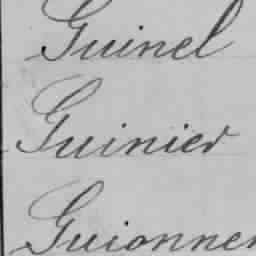 Guinel
Guinier
Guionner